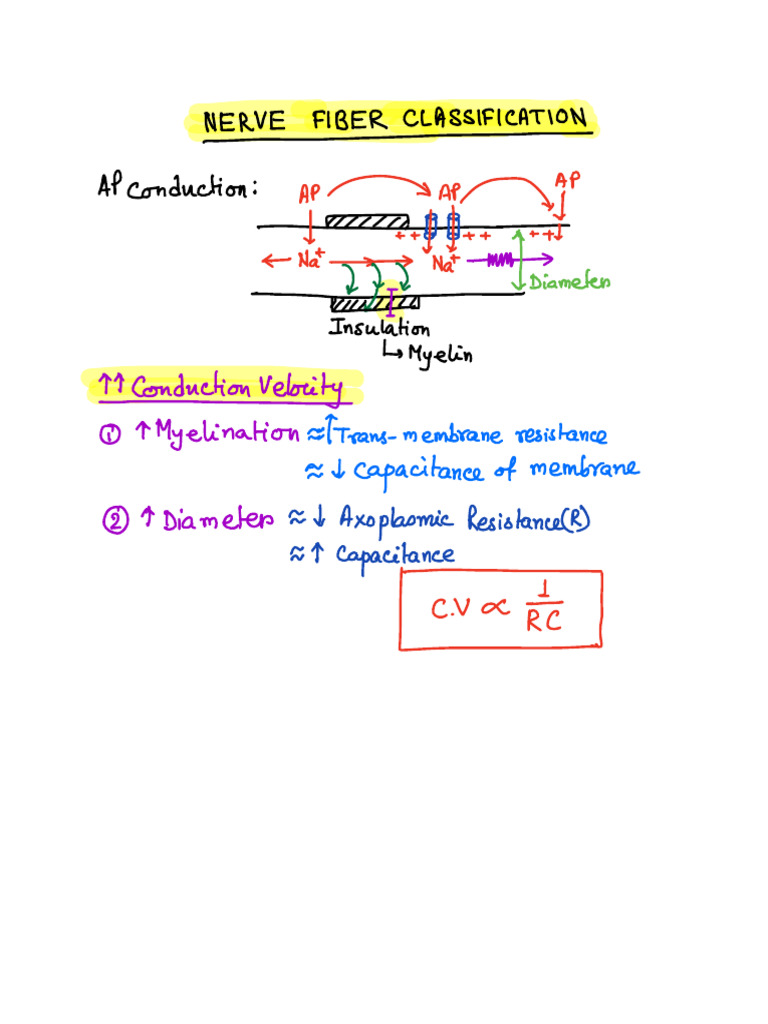 NERVE FIBER CLASSIFICATION
AP Conduction:
AP AP AP
+ + + + + +
Na+ Na+
Diameter
Insulation
↳ Myelin
↑↑ Conduction Velocity
① ↑ Myelination ≈ ↑ Trans-membrane resistance
≈ ↓ Capacitance of membrane
② ↑ Diameter ≈ ↓ Axoplasmic Resistance(R)
≈ ↑ Capacitance
C.V ∝ 1/RC